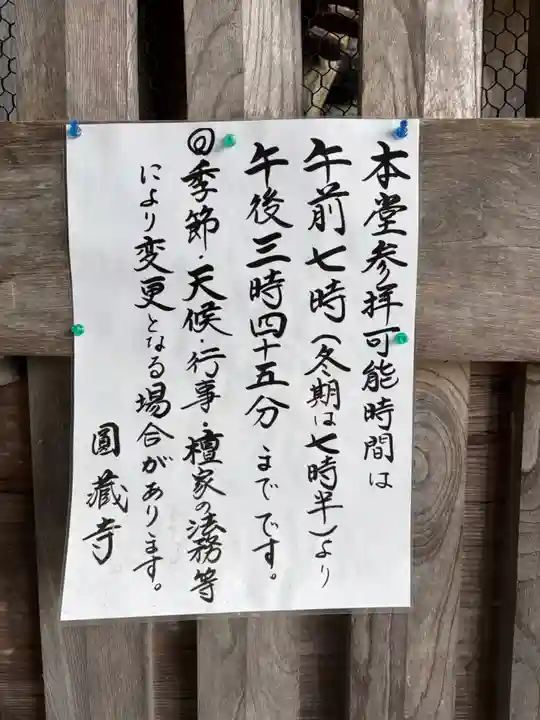 本堂参拝可能時間は
午前七時（冬期は七時半）より
午後三時四十五分までです。
◎季節・天候・行事・檀家の法務等
により変更となる場合があります。
圓蔵寺